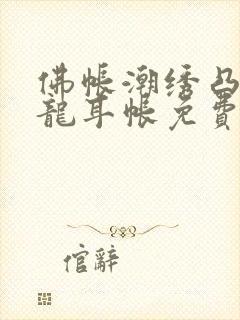 佛帐潮绣凸
龍耳帐免費
倌辭